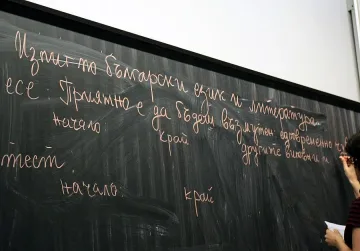 Изпит по български език и литература
есе: Приятно е да бъдеш възмутен едновременно
другите виновни
начало край
тест
начало: край